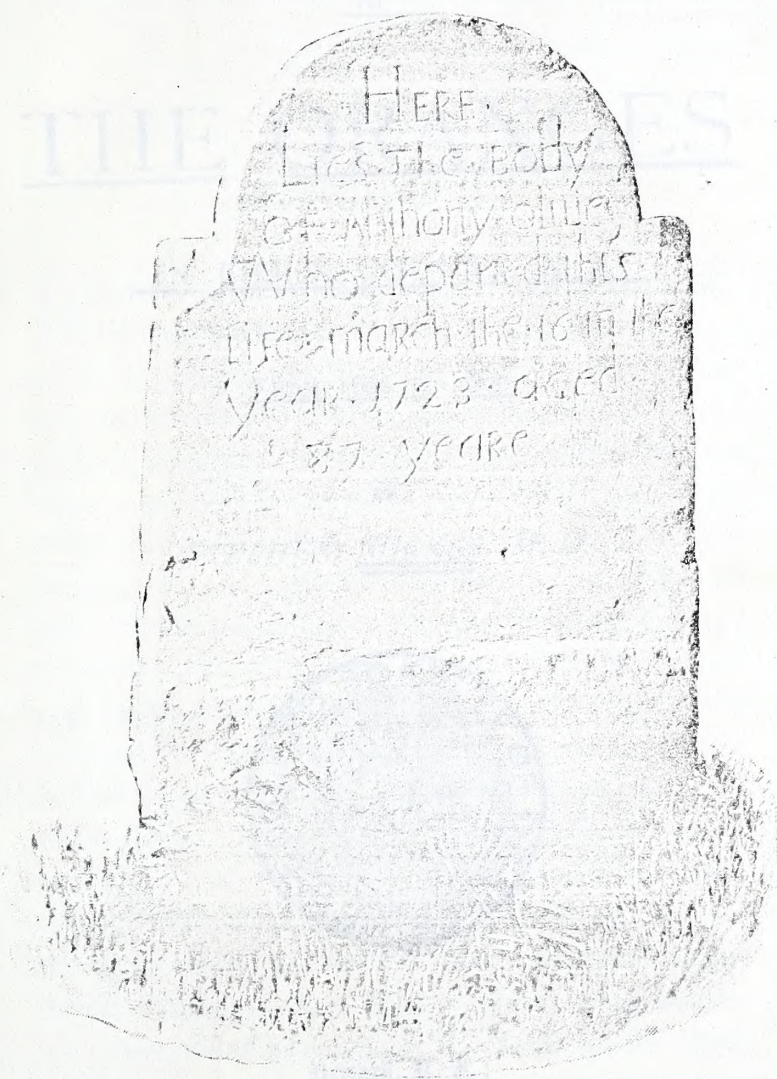 ·HERE·
Lies The Body
of Anthony Ollive
Who departed this
Life march the 16 in the
year · 1723 · aged
87 yeare